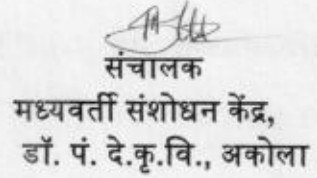 संचालक
मध्यवर्ती संशोधन केंद्र,
डॉ. पं. दे.कृ.वि., अकोला